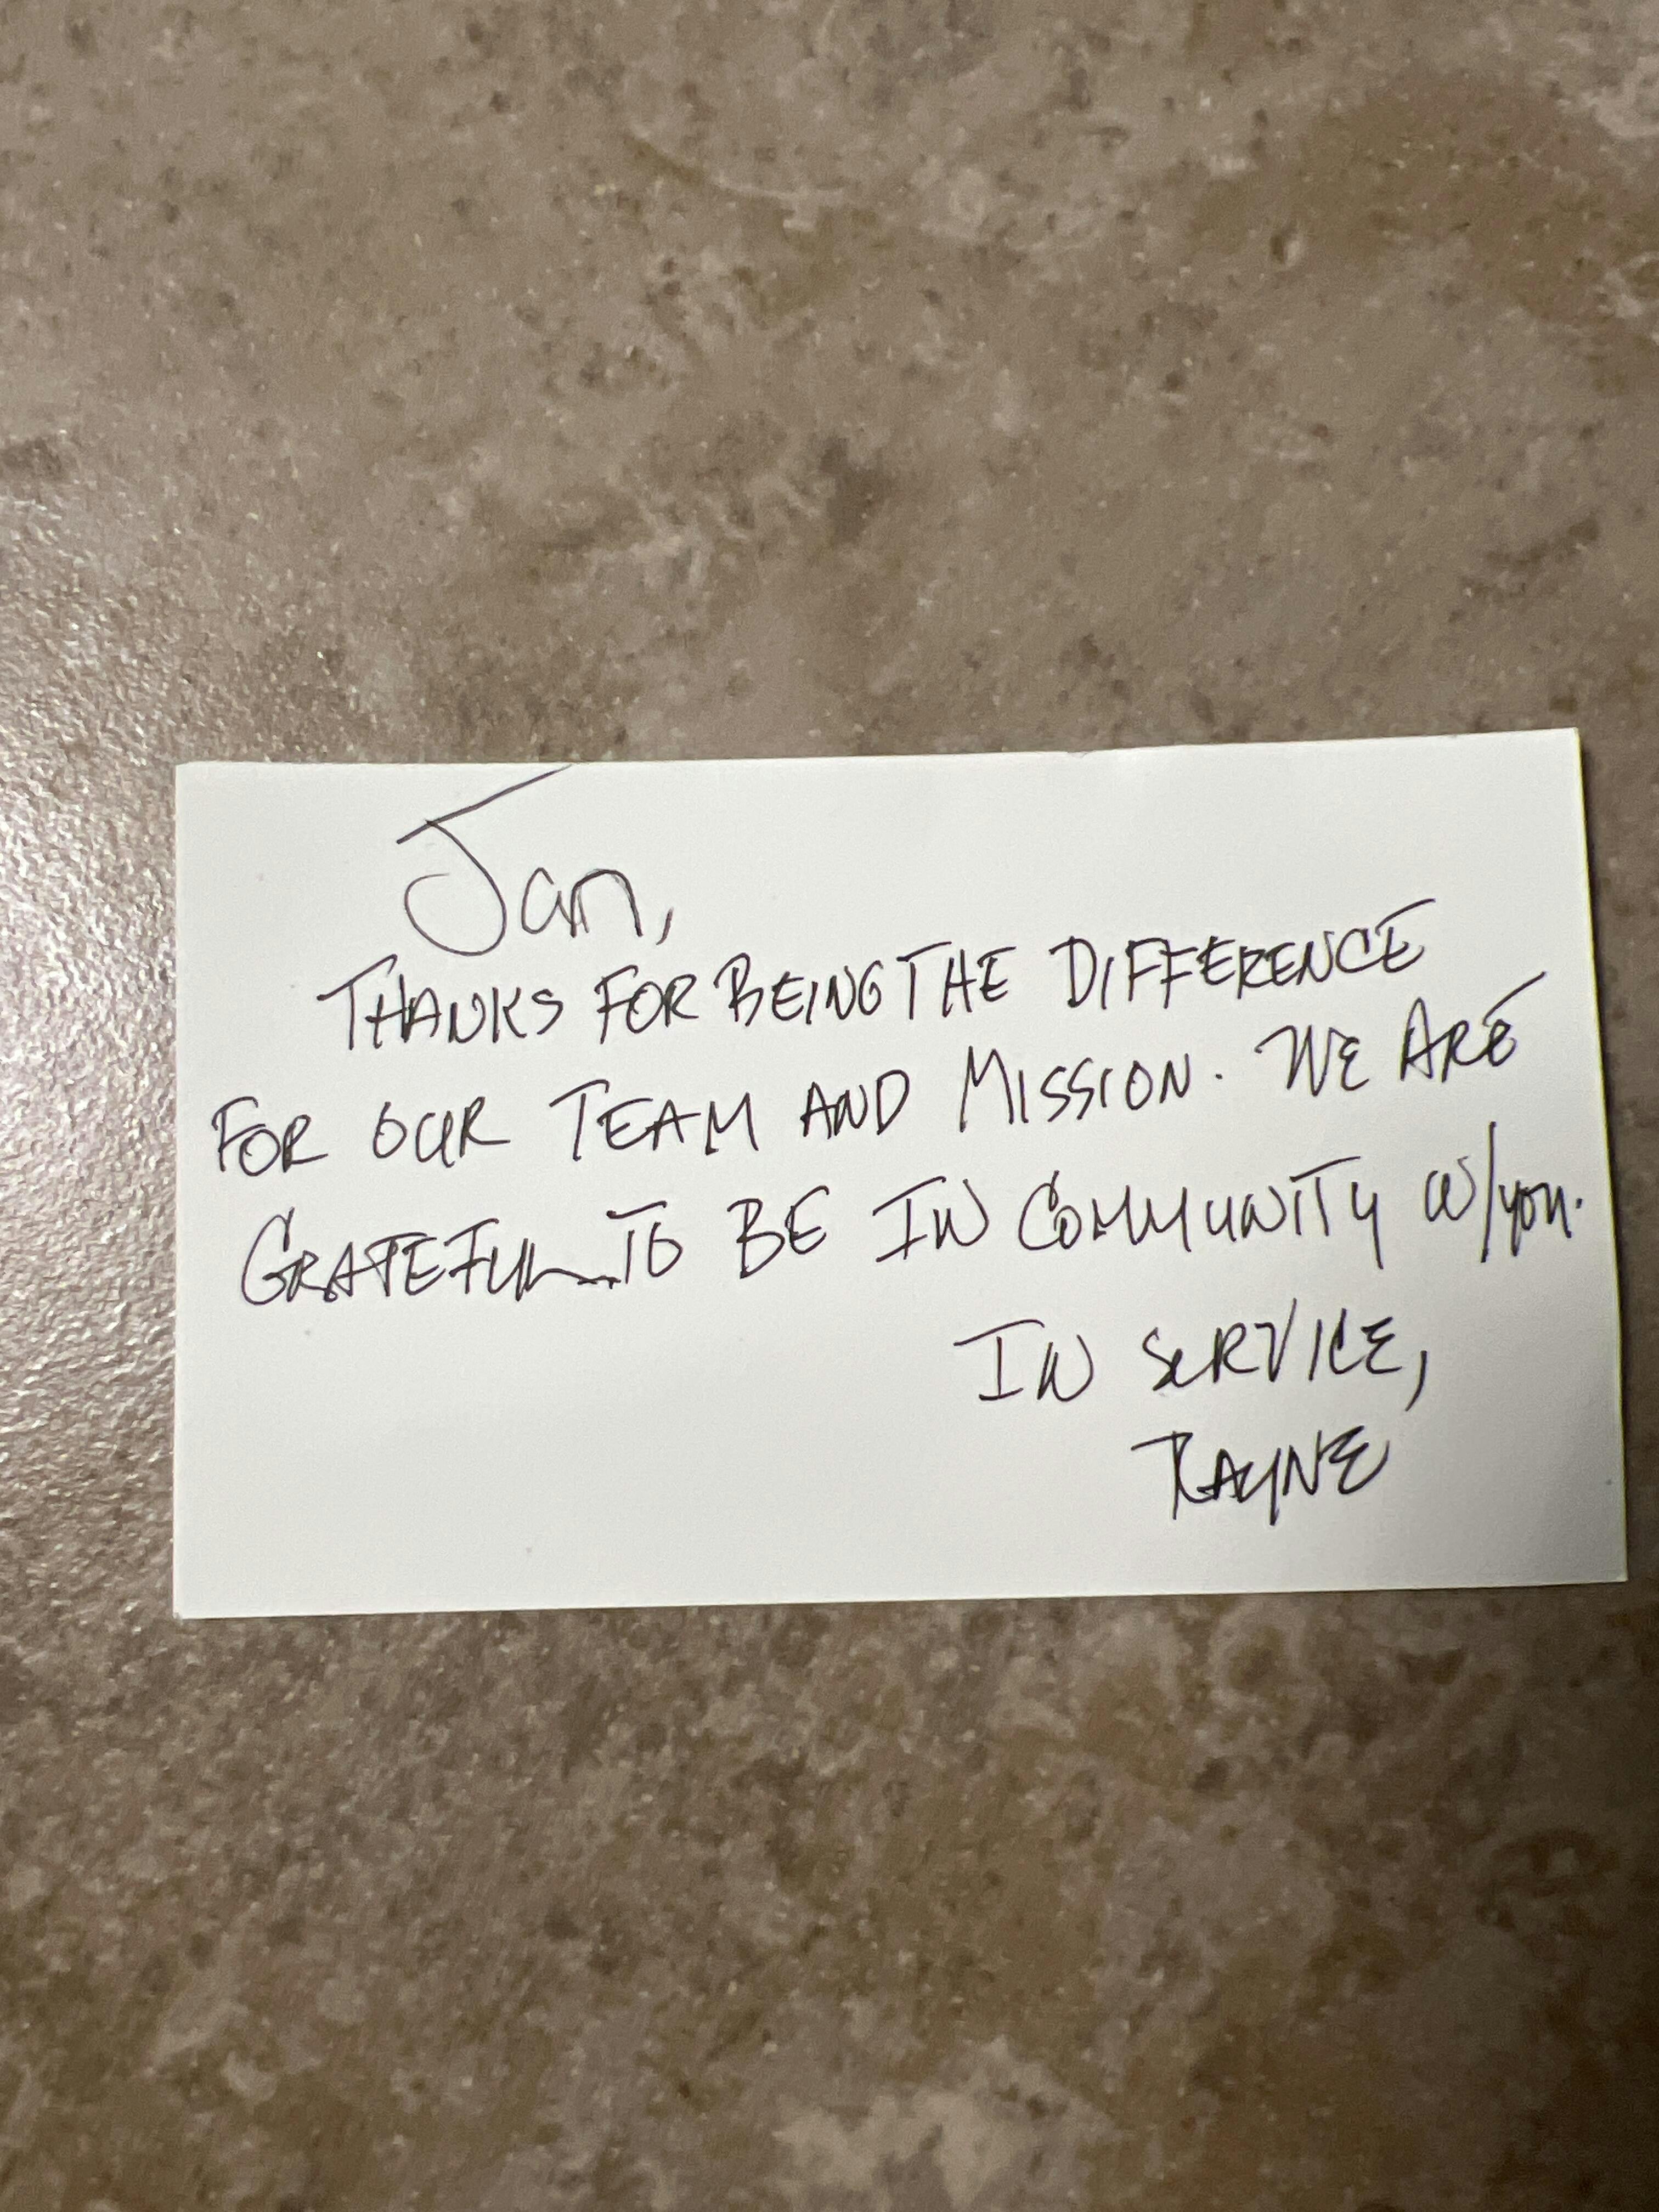 Jan,
THANKS FOR BEING THE DIFFERENCE
FOR OUR TEAM AND MISSION. WE ARE
GRATEFUL TO BE IN COMMUNITY W/YOU.
IN SERVICE,
RAYNE